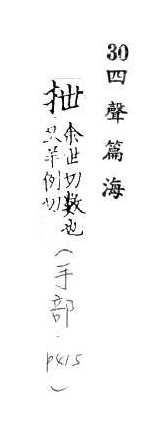 30四聲篇海
抴余世切數也
又羊例切
(手部.p415)